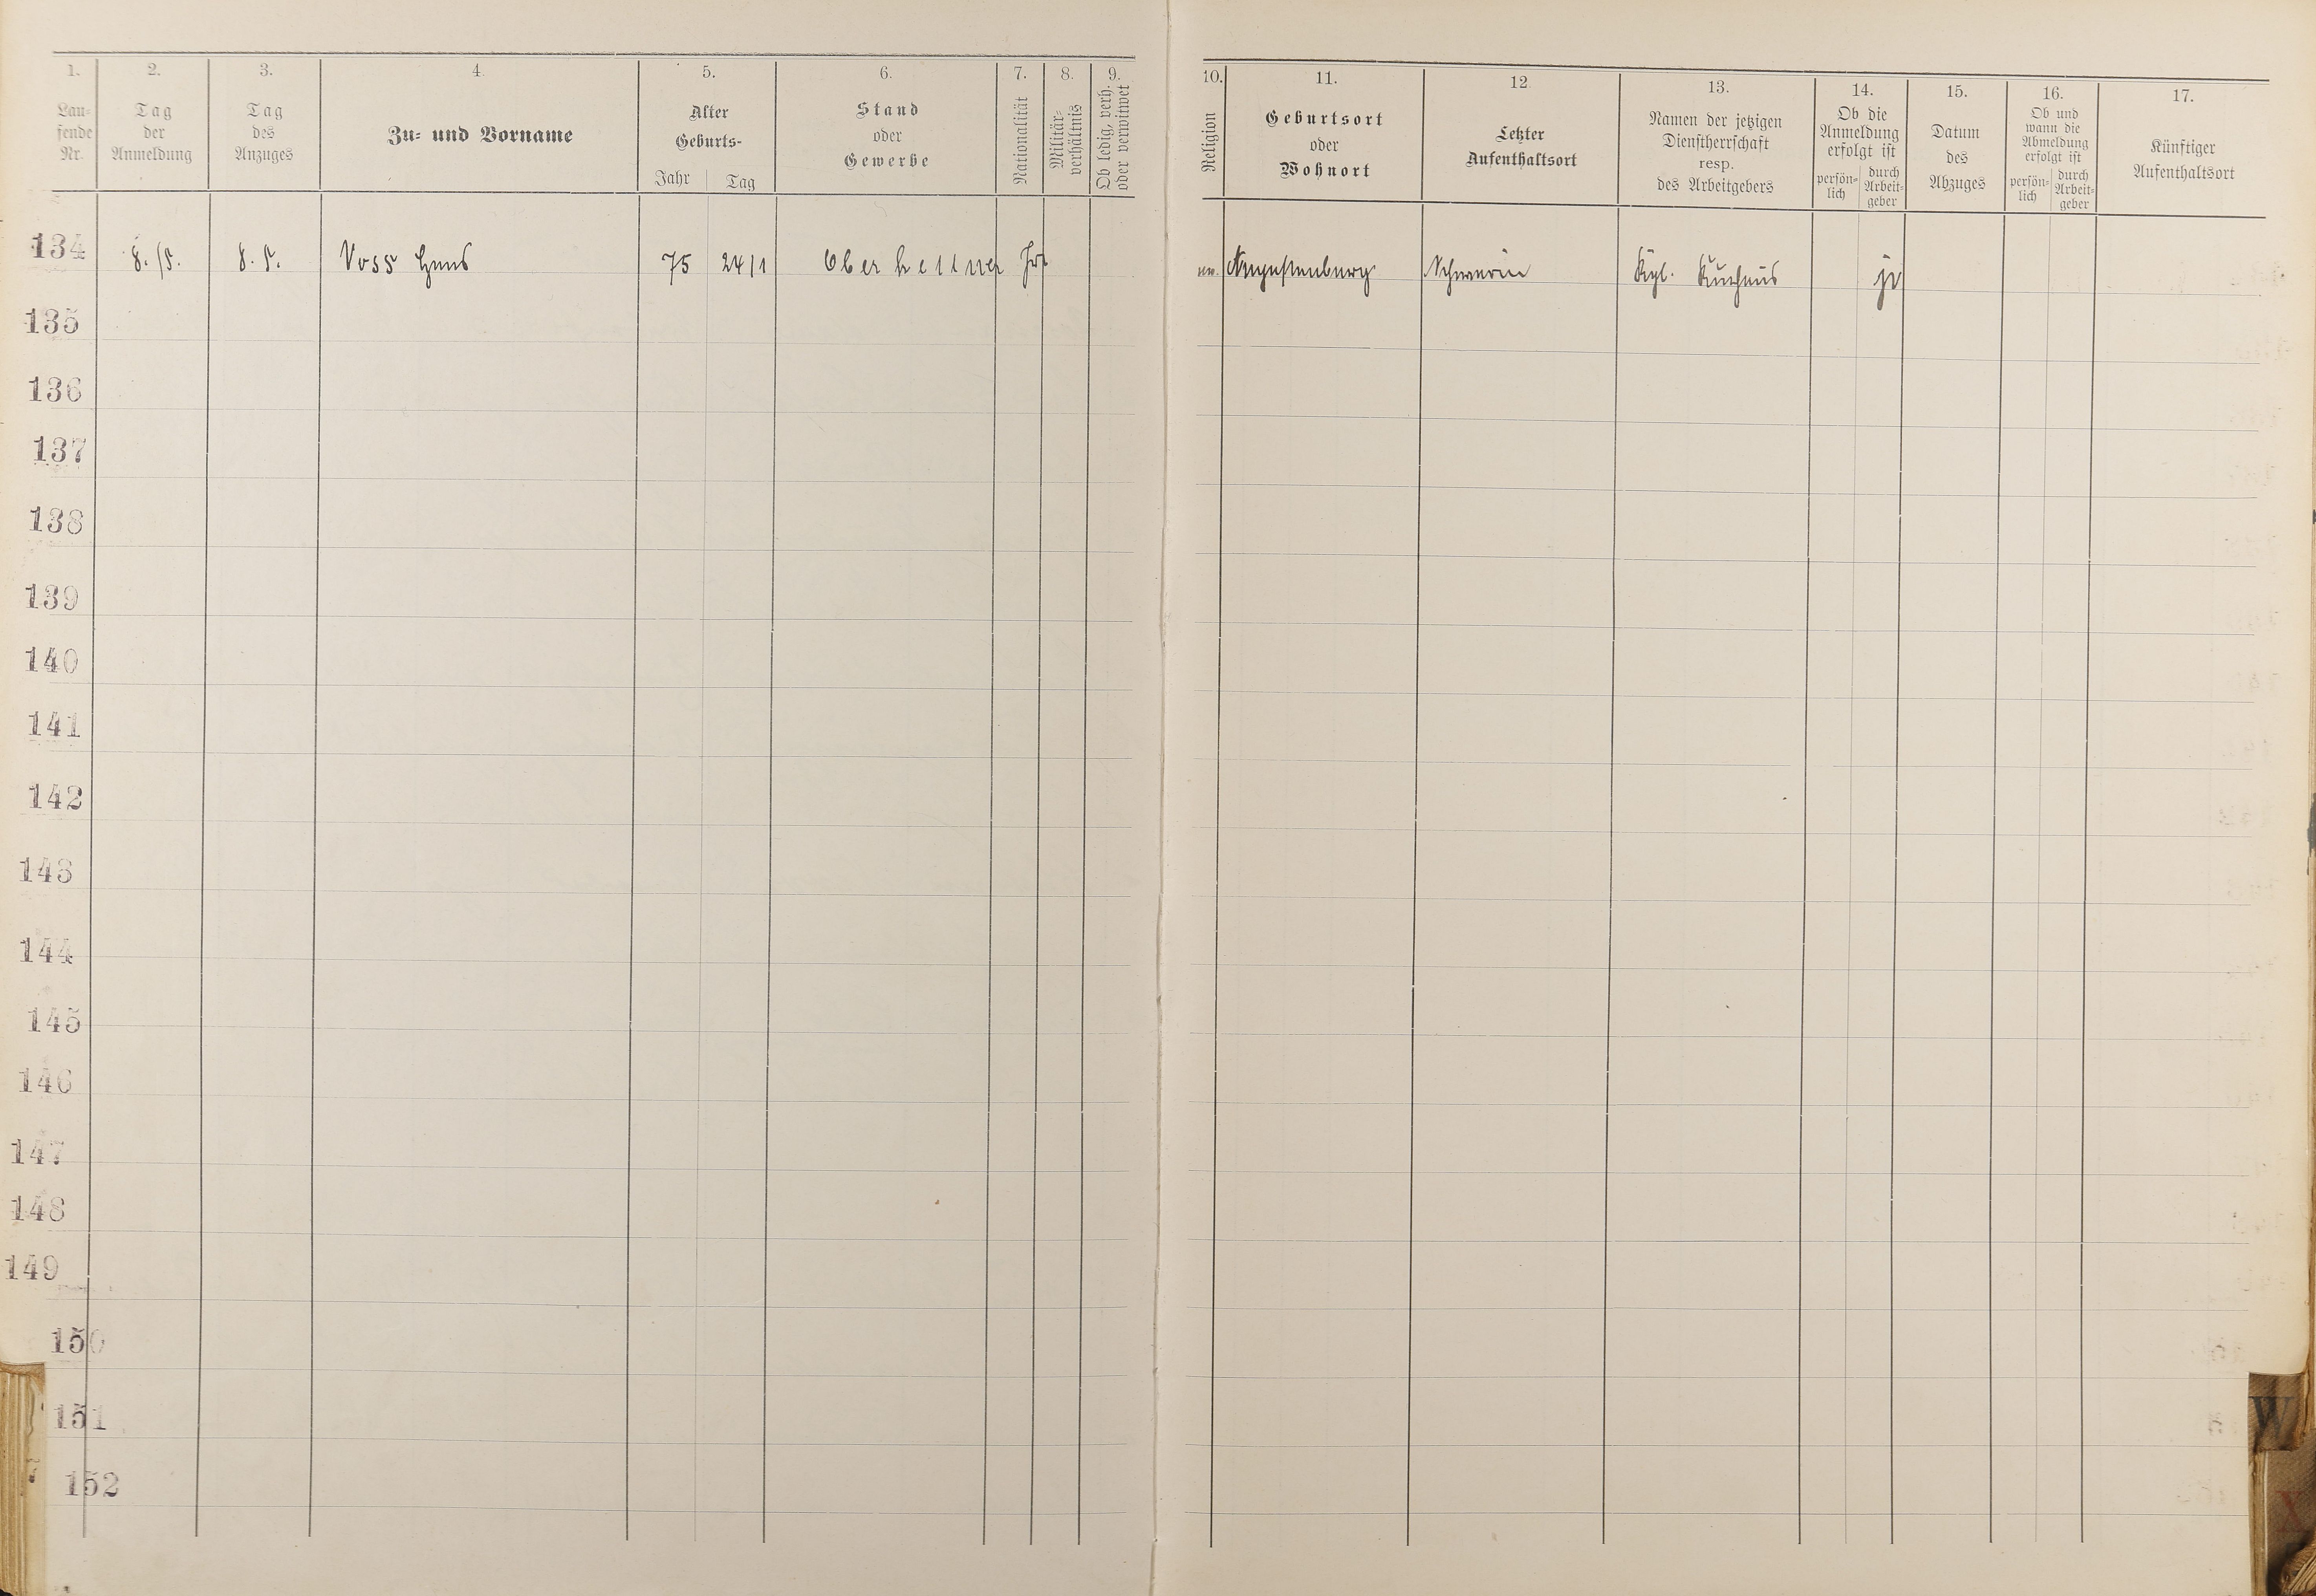 1. 2. 3. 4. 5. 6. 7. 8. 9. 10. 11. 12 13. 14. 15. 16. 17.
Lau-
fende
Nr.
Tag
der
Anmeldung
Tag
des
Anzuges
Zu- und Vorname
Alter
Geburts-
Jahr Tag
Stand
oder
Gewerbe
Nationalität
Militär-
verhältnis
Ob ledig, verh.
oder verwitwet
Religion
Geburtsort
oder
Wohnort
Letzter
Aufenthaltsort
Namen der jetzigen
Dienstherrschaft
resp.
des Arbeitgebers
Ob die
Anmeldung
erfolgt ist
persön-
lich
durch
Arbeit-
geber
Datum
des
Abzuges
Ob und
wann die
Abmeldung
erfolgt ist
persön-
lich
durch
Arbeit-
geber
Künftiger
Aufenthaltsort
134 8./5. 8. 5. Voss Hans 75 24/1 Oberkellner Augustenburg Schwerin Kgl. Kurhaus ja
135
136
137
138
139
140
141
142
143
144
145
146
147
148
149
150
151
152
W
X